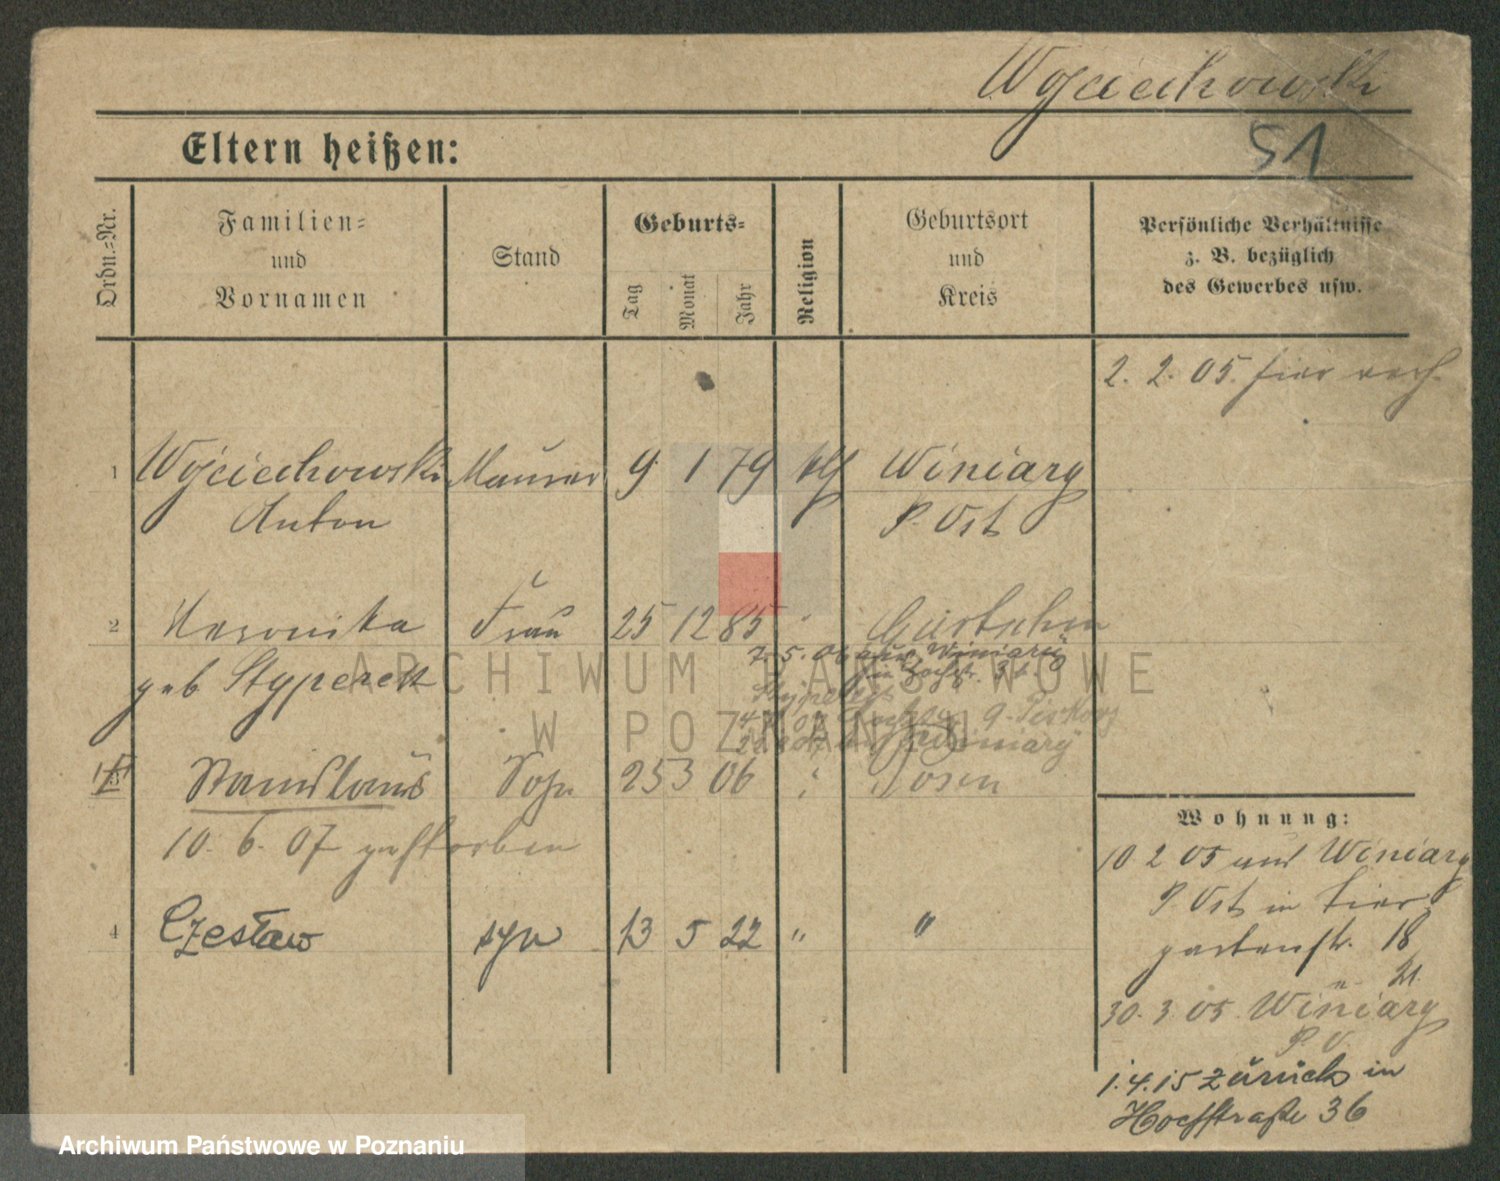 Wojciechowski
51
Eltern heißen:
Ordn.-Nr.
Familien-
und
Vornamen
Stand
Geburts-
Tag
Monat
Jahr
Religion
Geburtsort
und
Kreis
Persönliche Verhältnisse
z. B. bezüglich
des Gewerbes usw.
2. 2. 05. hier
1 Wojciechowski Maurer 9 1 79 Winiary
Anton P. Ost
2 Veronika Frau 25 12 85 "
geb
7. 5. 06 aus Winiary
Winiary
Stanislaus Sohn 25 3 06 " Posen
10. 6. 07 gestorben
4 Czesław syn 13 5 22 " "
Wohnung:
10 2 05 aus Winiary
P. Ost in Tier
gartenstr. 18
30. 3. 05. n. Winiary
P. O.
1.4.15 zurück in
36
ARCHIWUM PAŃSTWOWE
W POZNANIU
Archiwum Państwowe w Poznaniu